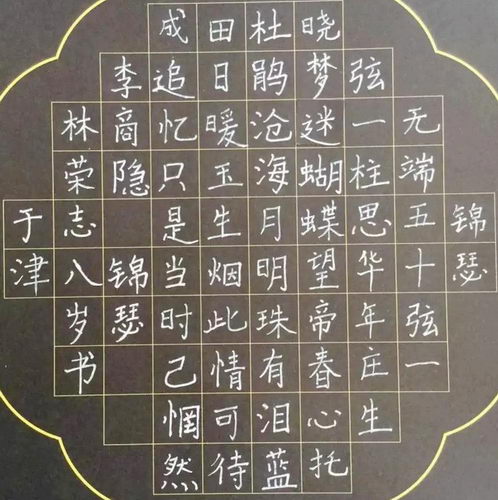 锦瑟
无端五十弦一
弦一柱思华年庄生
晓梦迷蝴蝶望帝春心托
杜鹃沧海月明珠有泪蓝
田日暖玉生烟此情可待
成追忆只是当时已惘然
李商隐 锦瑟
林荣志八岁书
于津